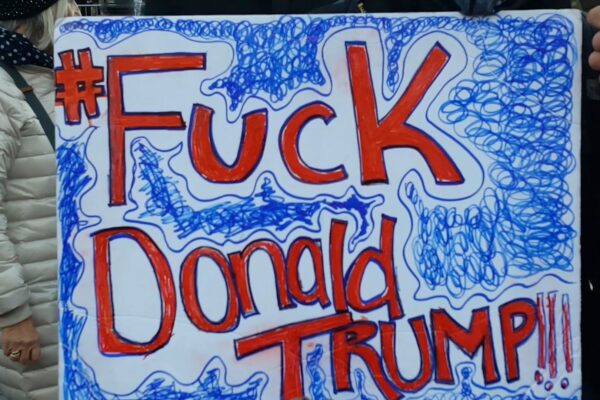 #Fuck
Donald
TRUMP!!!